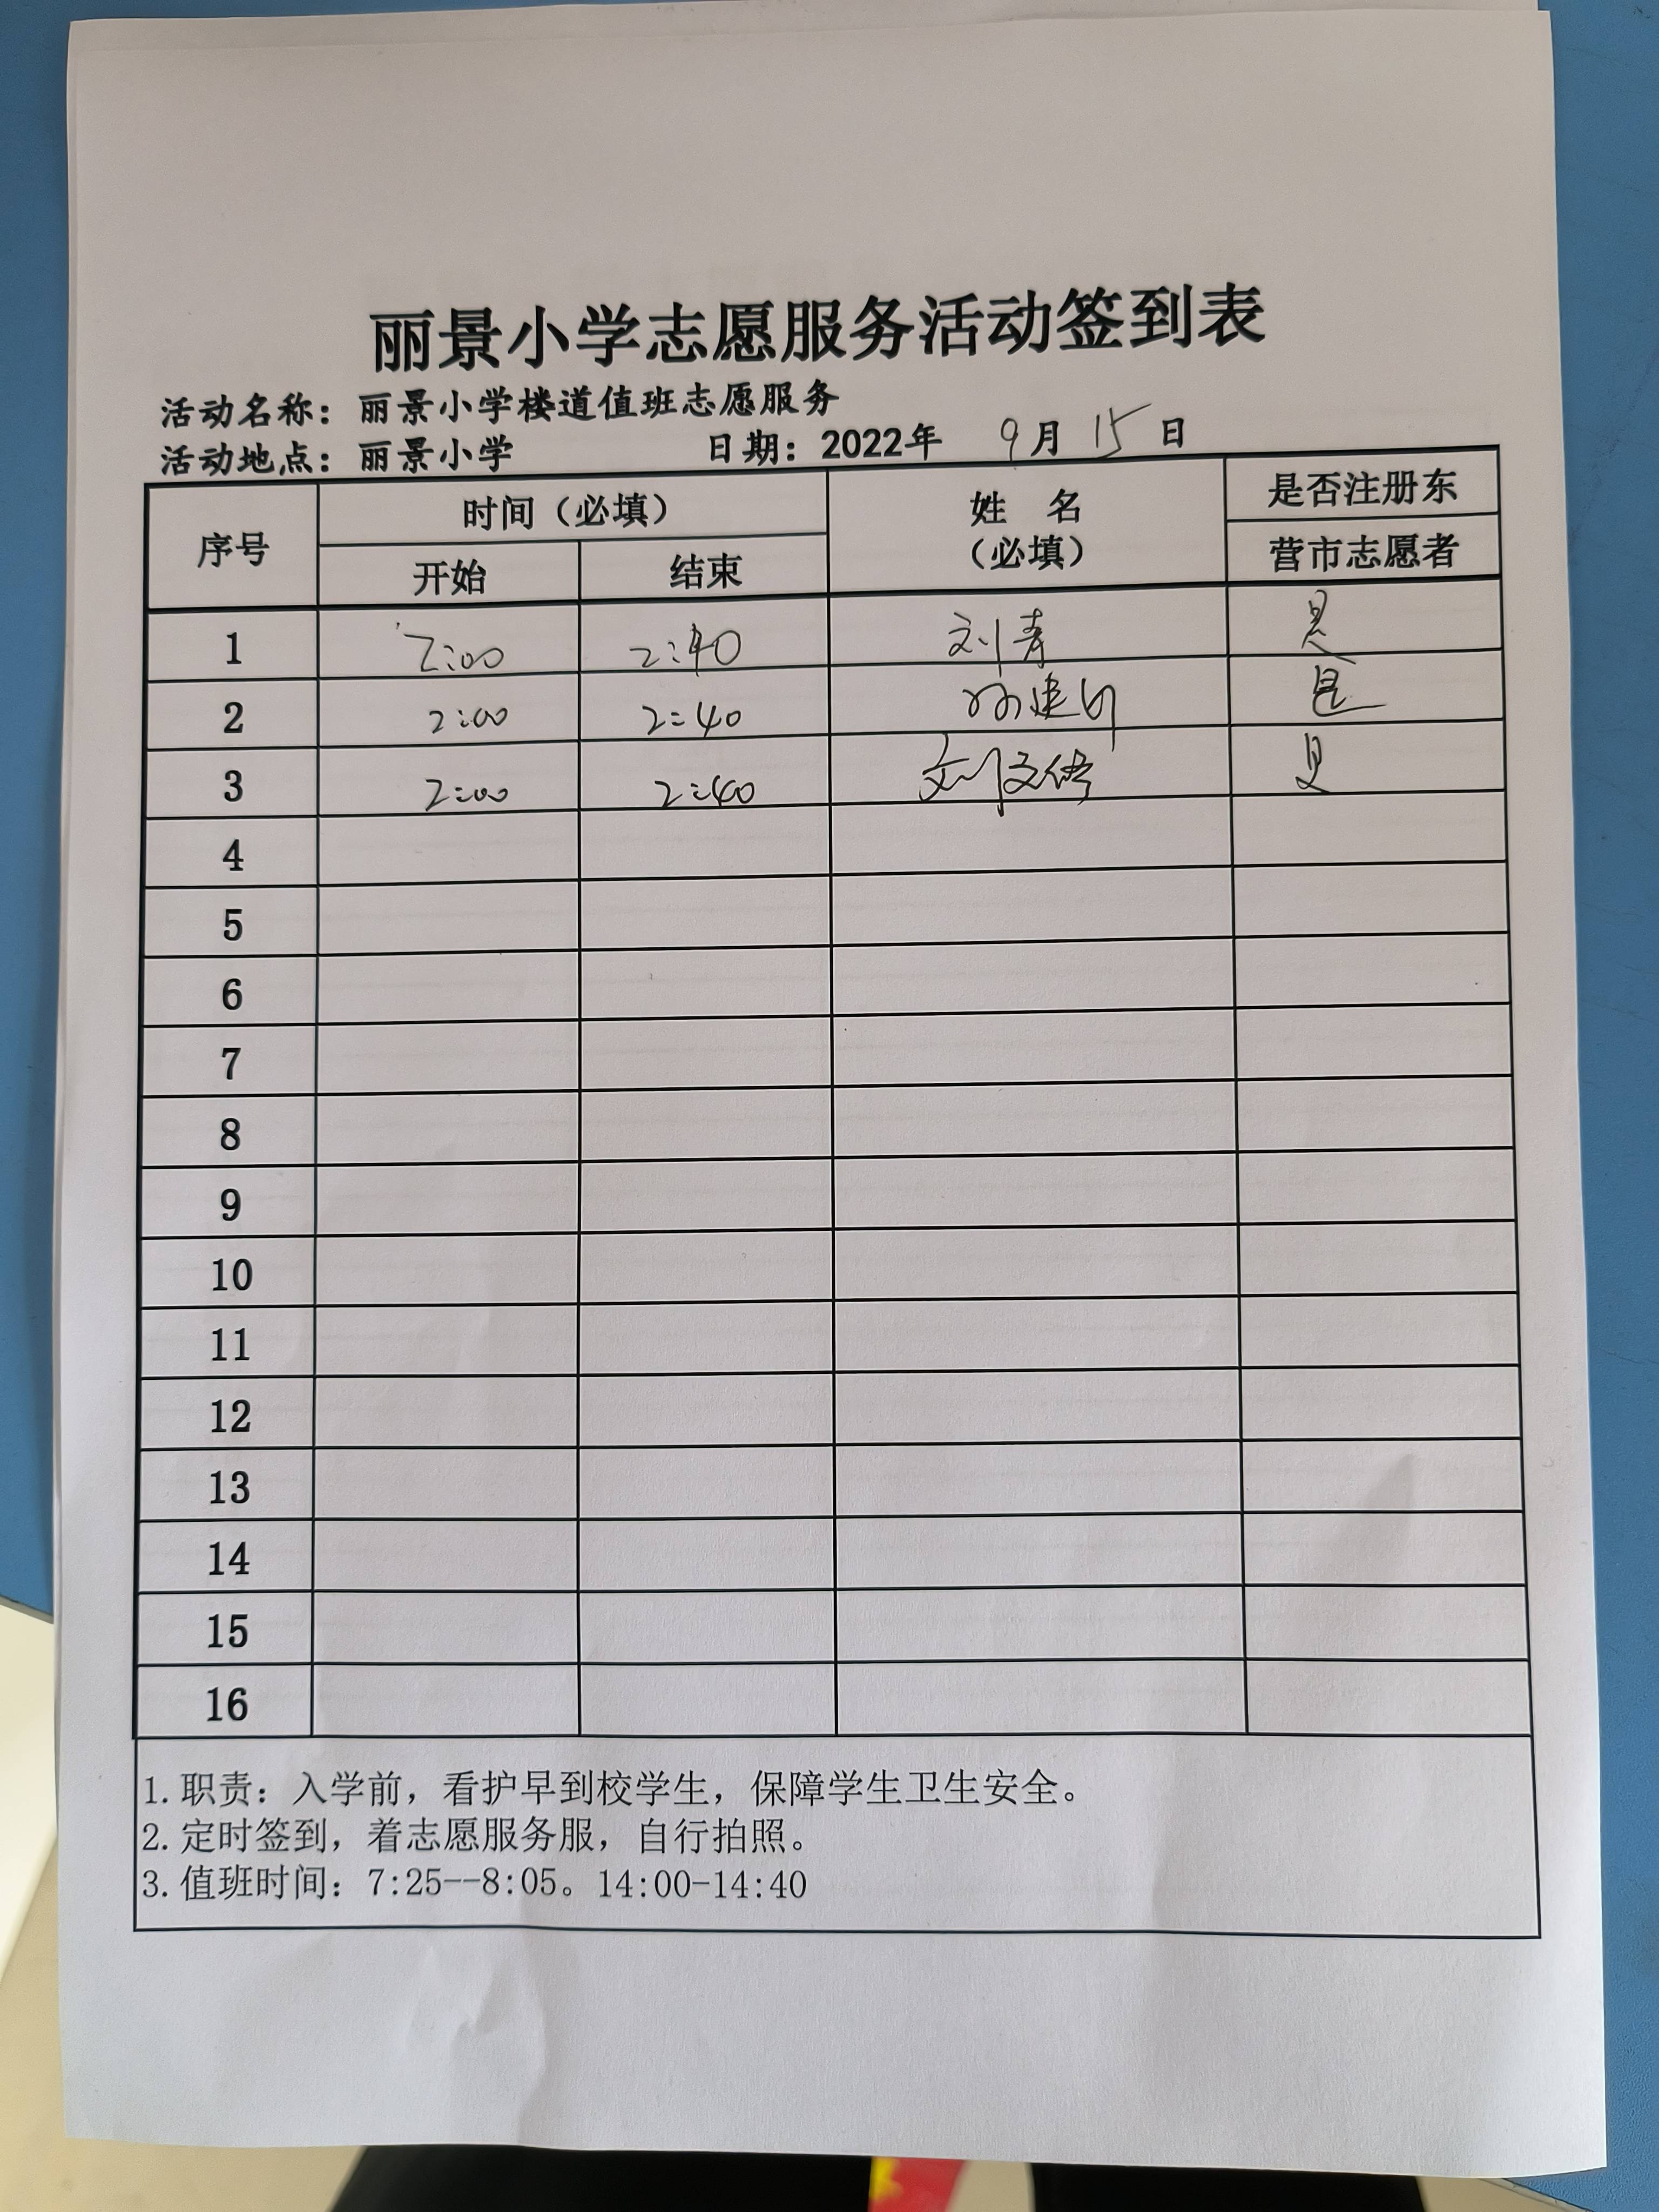 丽景小学志愿服务活动签到表
活动名称：丽景小学楼道值班志愿服务
活动地点：丽景小学 日期：2022年 9月 15日
序号 时间（必填） 姓 名（必填） 是否注册东营市志愿者
开始 结束
1 2:00 2:40 刘青 是
2 2:00 2:40 是
3 2:00 2:40 刘文 是
4
5
6
7
8
9
10
11
12
13
14
15
16
1.职责：入学前，看护早到校学生，保障学生卫生安全。
2.定时签到，着志愿服务服，自行拍照。
3.值班时间：7:25--8:05。14:00-14:40